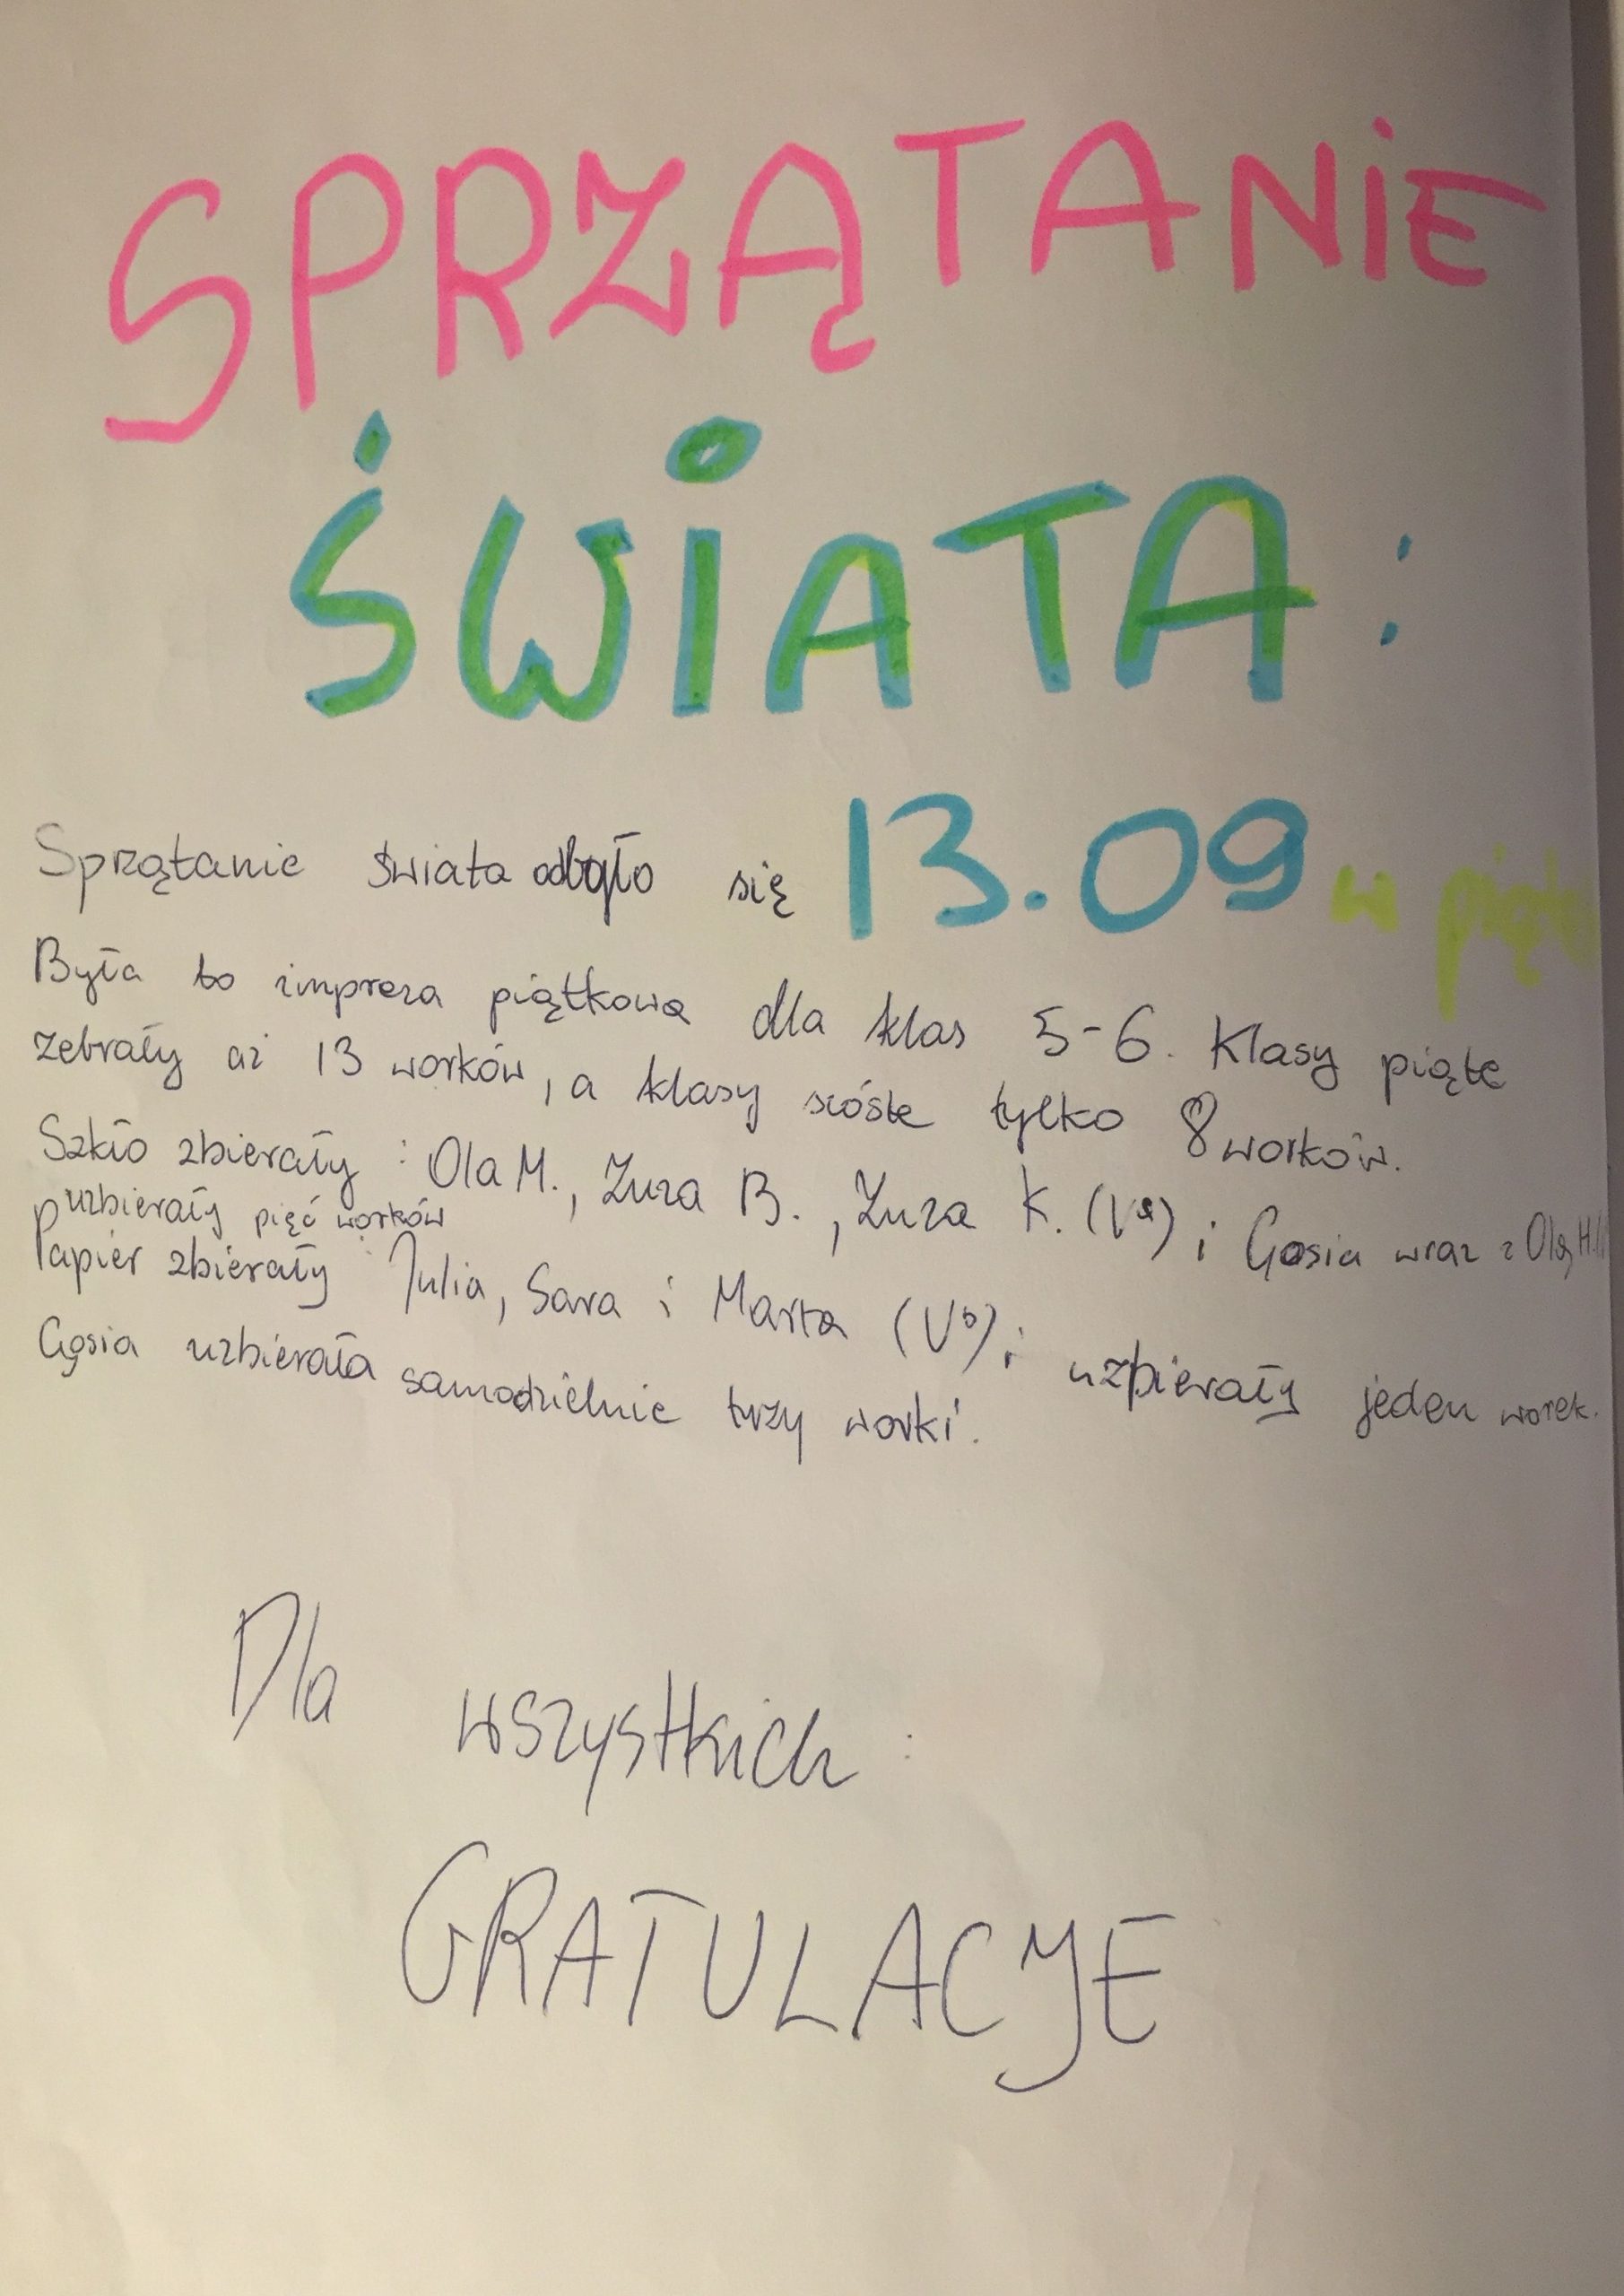 SPRZĄTANIE
ŚWIATA:
Sprzątanie świata odbyło się 13.09 w
Była to impreza piątkowa dla klas 5-6. Klasy piąte
zebrały aż 13 worków, a klasy szóste tylko 8 worków.
Szkło zbierały: Ola M., Zuza B., Zuza K. (Va) i Gosia wraz z Olą H.
uzbierały pięć worków
Papier zbierały Julia, Sara i Marta (Vb) i uzbierały jeden worek.
Gosia uzbierała samodzielnie trzy worki.
Dla wszystkich:
GRATULACJE